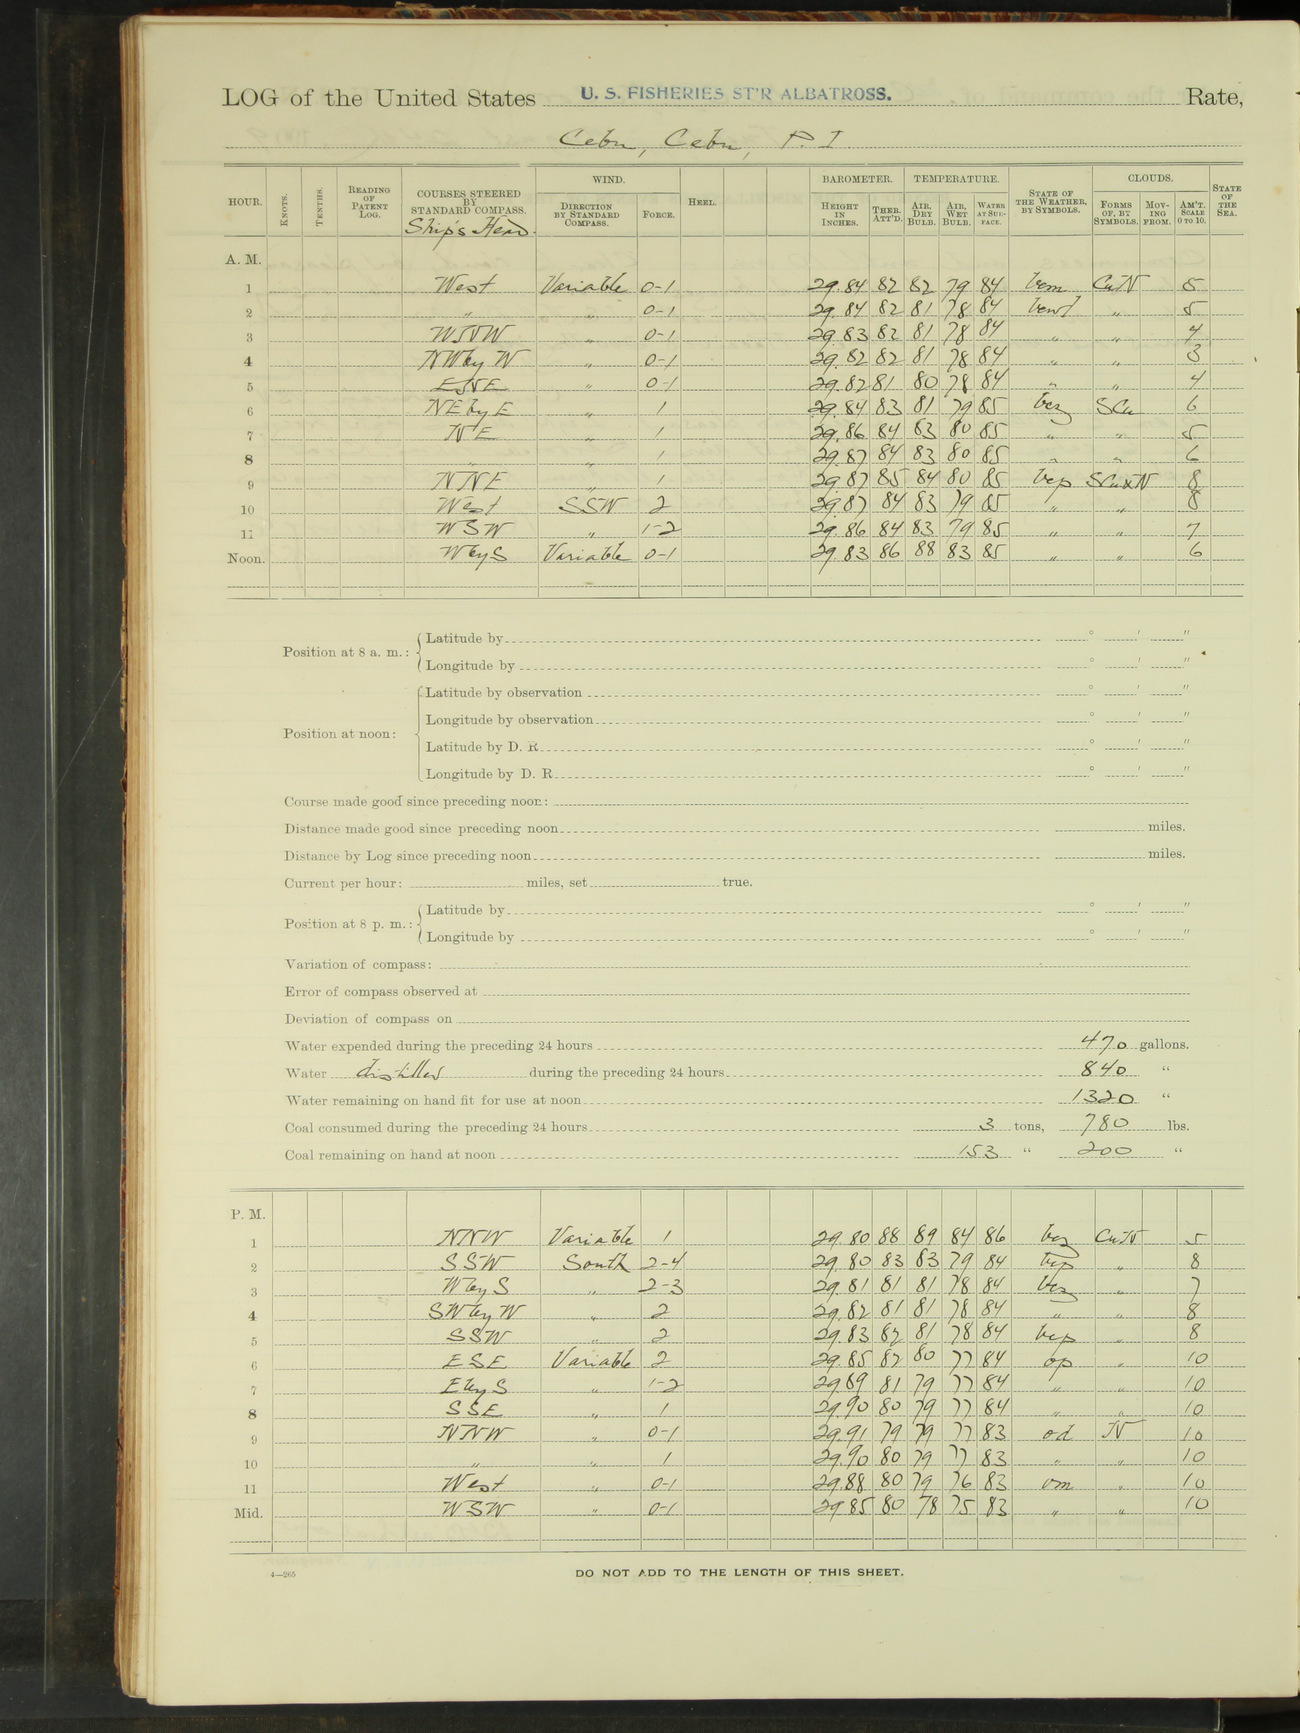 LOG of the United States U. S. FISHERIES ST'R ALBATROSS. Rate,
Cebu, Cebu, P. I.
HOUR. KNOTS. TENTHS. READING OF PATENT LOG. COURSES STEERED BY STANDARD COMPASS. Ship's Head. WIND. DIRECTION BY STANDARD COMPASS. FORCE. HEEL. BAROMETER. HEIGHT IN INCHES. THER. ATT'D. TEMPERATURE. AIR, DRY BULB. AIR, WET BULB. WATER AT SURFACE. STATE OF THE WEATHER, BY SYMBOLS. CLOUDS. FORMS OF, BY SYMBOLS. MOVING FROM. AM'T. SCALE 0 TO 10. STATE OF THE SEA.
A. M.
1 West Variable 0-1 29.84 82 82 79 84 bcm CuN 5
2 " " 0-1 29.84 82 81 78 84 " 5
3 WSW " 0-1 29.83 82 81 78 84 " " 4
4 NW by W " 0-1 29.82 82 81 78 84 " " 3
5 ENE " 0-1 29.82 81 80 78 84 " " 4
6 NE by E " 1 29.84 83 81 79 85 bcz SCu 6
7 NE " 1 29.86 84 83 80 85 " " 5
8 " " 1 29.87 84 83 80 85 " " 6
9 NNE " 1 29.87 85 84 80 85 bcp SCu&N 8
10 West SSW 2 29.87 84 83 79 85 " " 8
11 WSW " 1-2 29.86 84 83 79 85 " " 7
Noon. W by S Variable 0-1 29.83 86 88 83 85 " " 6
Position at 8 a. m.: Latitude by ° ' "
Longitude by ° ' "
Position at noon: Latitude by observation ° ' "
Longitude by observation ° ' "
Latitude by D. R. ° ' "
Longitude by D. R. ° ' "
Course made good since preceding noon:
Distance made good since preceding noon miles.
Distance by Log since preceding noon miles.
Current per hour: miles, set true.
Position at 8 p. m.: Latitude by ° ' "
Longitude by ° ' "
Variation of compass:
Error of compass observed at
Deviation of compass on
Water expended during the preceding 24 hours 470 gallons.
Water distilled during the preceding 24 hours 840 "
Water remaining on hand fit for use at noon 1320 "
Coal consumed during the preceding 24 hours 3 tons, 780 lbs.
Coal remaining on hand at noon 153 " 200 "
P. M.
1 NNW Variable 1 29.80 88 89 84 86 bcz CuN 5
2 SSW South 2-4 29.80 83 83 79 84 bcp " 8
3 W by S " 2-3 29.81 81 81 78 84 bcz " 7
4 SW by W " 2 29.82 81 81 78 84 " " 8
5 SSW " 2 29.83 82 81 78 84 bcp " 8
6 ESE Variable 2 29.85 82 80 77 84 op " 10
7 E by S " 1-2 29.89 81 79 77 84 " " 10
8 SSE " 1 29.90 80 79 77 84 " " 10
9 NNW " 0-1 29.91 79 79 77 83 od N 10
10 " " 1 29.90 80 79 77 83 " " 10
11 West " 0-1 29.88 80 79 76 83 om " 10
Mid. WSW " 0-1 29.85 80 78 75 83 " " 10
4—265
DO NOT ADD TO THE LENGTH OF THIS SHEET.